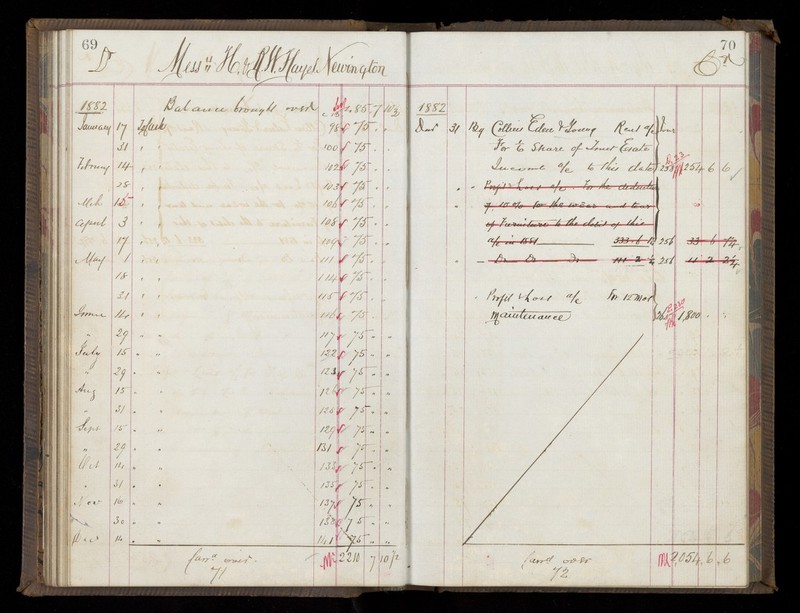 69
Dr
Mess.rs H. & R.W. Hayel Newington
1882 Balance brought over 85 7 10½
January 17 To Cash 98 75 . .
31 " 100 75 . .
February 14 " 102 75 . .
28 " 103 75 . .
Mch 15 " 106 75 . .
April 3 " " 108 75 . .
17 " " 109 75 . .
May 1 " " 111 75 . .
18 " " 114 75 . .
31 " " 115 75 . .
June 14 " " 116 75 . .
" 29 " " 117 75 . "
July 15 " " 122 75 . "
" 29 " " 123 75 . "
Aug 15 " " 126 75 . "
" 31 " " 128 75 . "
Sept 15 " " 129 75 " "
" 29 " " 131 75 . "
Oct 14 " " 133 75 . "
" 31 " " 135 75 . "
Nov 16 " " 137 75 " "
" 30 " " 138 75 " "
Dec 14 " " 141 75 " "
Carrd over 71 2210 7 10½
70
Cr
1882
Decr 31 By Collins Eden & Young Rent a/c
For ½ Share of Joint Estate
Income a/c to this date 253 254 6 6
" " Profit & Loss a/c For the deduction
of 10 % for the wear and tear
of Furniture to the debit of this
a/c in 1881 333 . 6 256 33 6
" Do Do Do 111 2 256 11 2 2¼
" Profit & Loss a/c For 12 Mos
Maintenance 1,800 . .
Carrd over 72 2,054 . 6 . 6